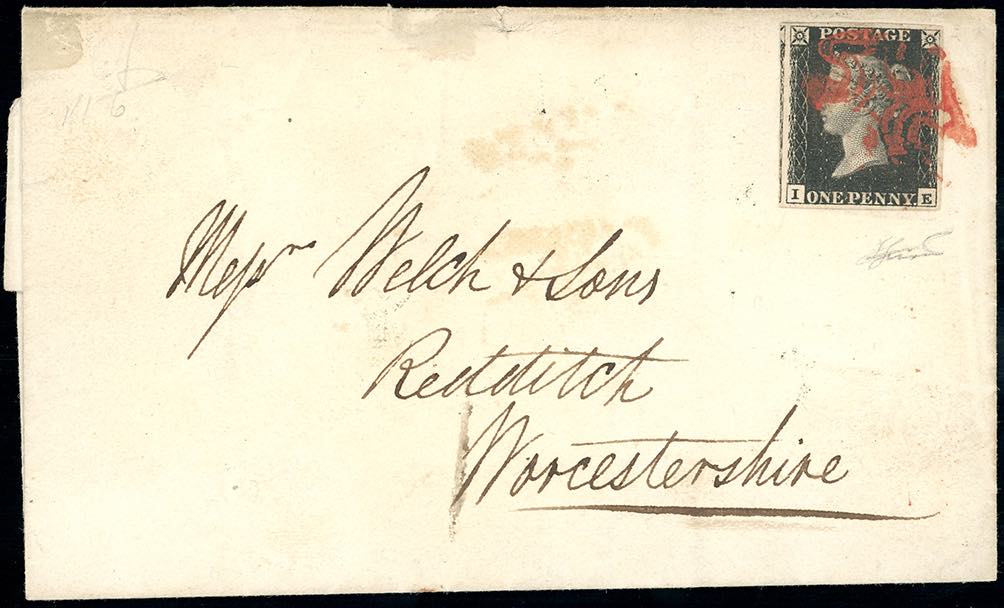 POSTAGE
I ONE PENNY E
Messrs Welch & Sons
Redditch
Worcestershire